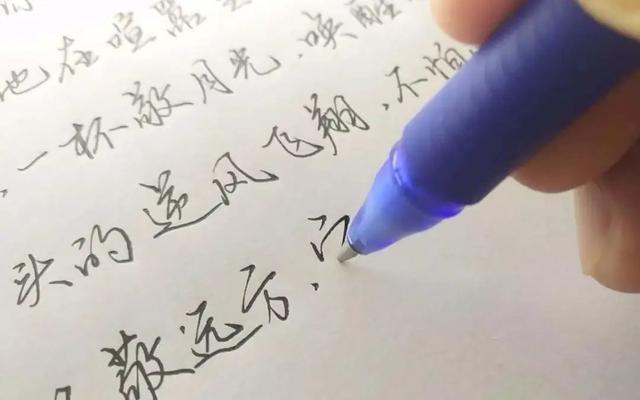 他在喧嚣
一杯敬月光,唤醒
头的逆风飞翔,不怕
敬远方,